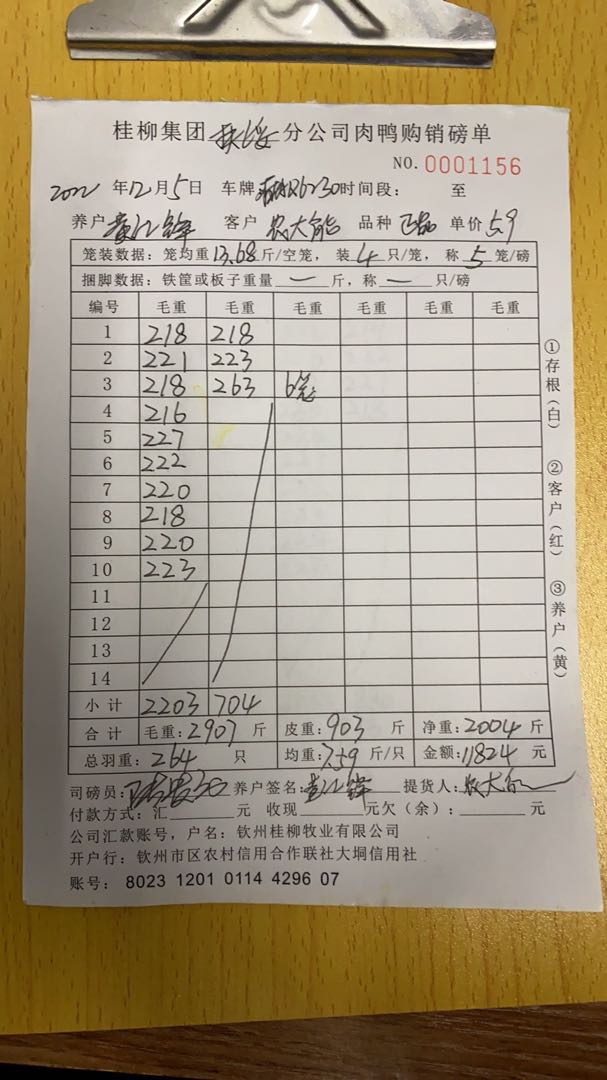 桂柳集团 扶绥 分公司肉鸭购销磅单
NO. 0001156
2022 年12月5日 车牌 时间段： 至
养户 客户 农大能 品种 正品 单价 5.9
笼装数据：笼均重13.68斤/空笼，装 4 只/笼，称 5 笼/磅
捆脚数据：铁筐或板子重量 — 斤，称 — 只/磅
编号 毛重 毛重 毛重 毛重 毛重 毛重
1 218 218
2 221 223
3 218 263 6笼
4 216
5 227
6 222
7 220
8 218
9 220
10 223
11
12
13
14
小计 2203 704
合计 毛重：2907 斤 皮重：903 斤 净重：2004 斤
总羽重：264 只 均重：7.59 斤/只 金额：11824 元
司磅员： 养户签名： 提货人：农大能
付款方式：汇 元 收现 元欠（余）： 元
公司汇款账号，户名：钦州桂柳牧业有限公司
开户行：钦州市区农村信用合作联社大垌信用社
账号： 8023 1201 0114 4296 07
①存根（白）
②客户（红）
③养户（黄）